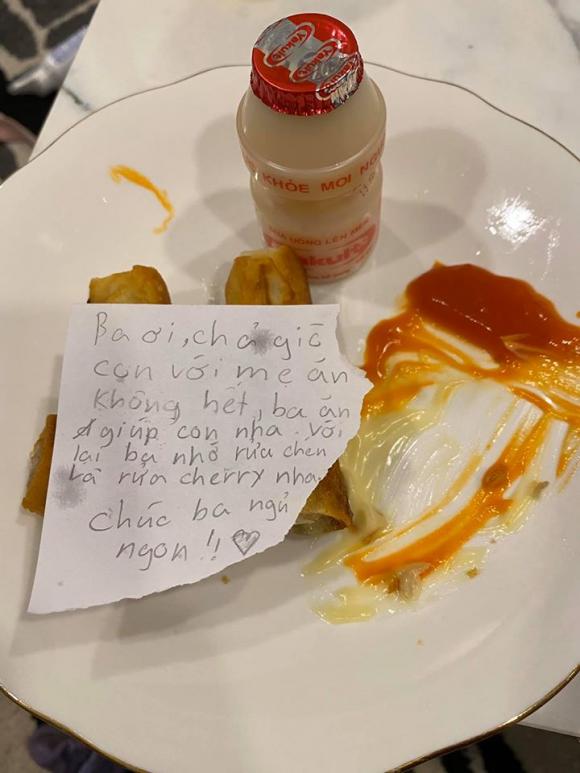 Yakult
Yakult
KHỎE MỌI NGƯ
SỮA UỐNG LÊN MEN
Yakult
Ba ơi, chả giò
con với mẹ ăn
không hết, ba ăn
giúp con nha. với
lại ba nhớ rửa chén
và rửa cherry nha.
chúc ba ngủ
ngon!! ♡